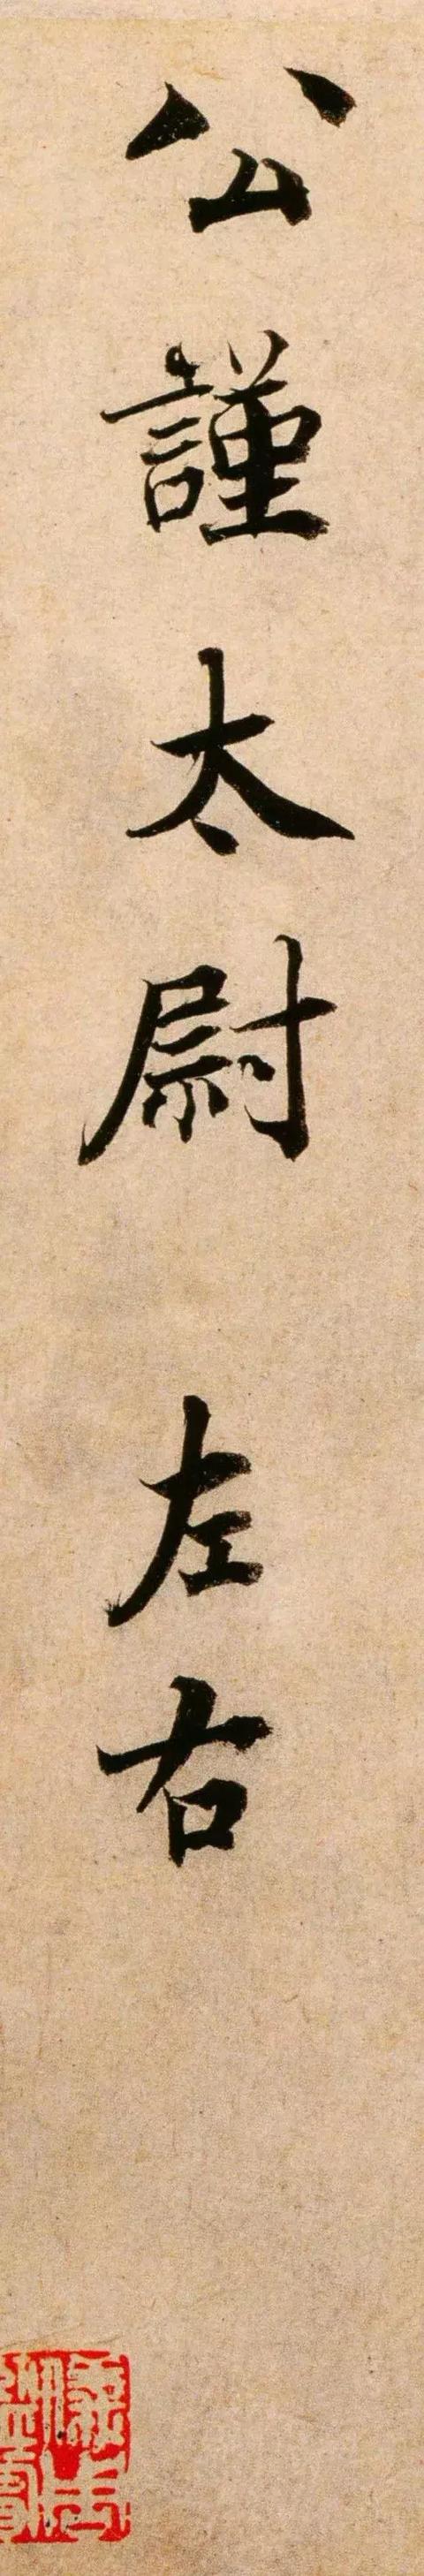 公謹太尉 左右